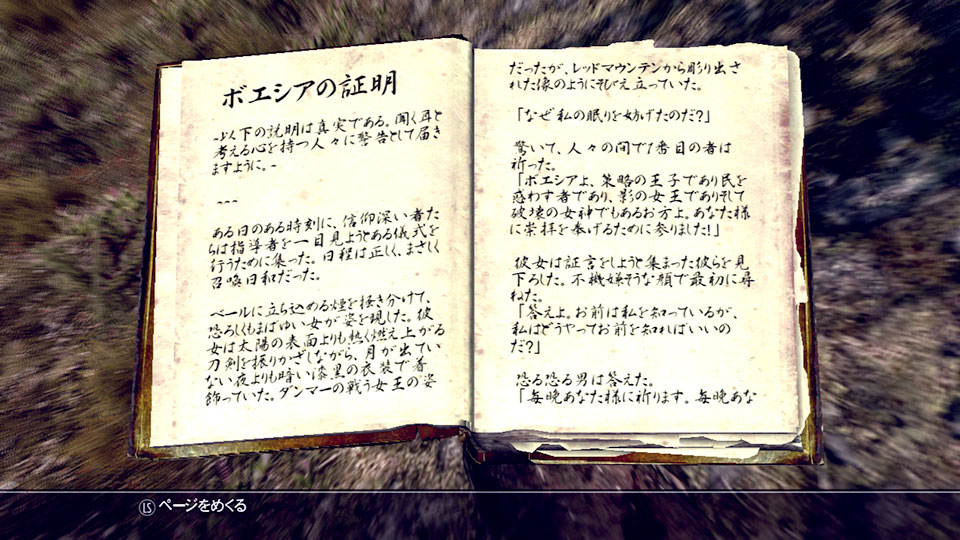 ボエシアの証明
~以下の説明は真実である。聞く耳と
考える心を持つ人々に警告として届き
ますように。~
~~~
ある日のある時刻に、信仰深い者た
ちは指導者を一目見ようとある儀式を
行うために集った。日程は正しく、まさしく
召喚日和だった。
ベールに立ち込める煙を掻き分けて、
恐ろしくもまばゆい女が姿を現した。彼
女は太陽の表面よりも熱く燃え上がる
刀剣を振りかざしながら、月が出てい
ない夜よりも暗い漆黒の衣装で着
飾っていた。ダンマーの戦う女王の姿
だったが、レッドマウンテンから彫り出さ
れた像のようにそびえ立っていた。
「なぜ私の眠りを妨げたのだ?」
驚いて、人々の間で1番目の者は
祈った。
「ボエシアよ、策略の王子であり民を
惑わす者であり、影の女王でありそして
破壊の女神でもあるお方よ。あなた様
に崇拝を捧げるために参りました!」
彼女は証言をしようと集まった彼らを見
下ろした。不機嫌そうな顔で最初に尋
ねた。
「答えよ。お前は私を知っているが、
私はどうやってお前を知ればいいの
だ?」
恐る恐る男は答えた。
「毎晩あなた様に祈ります。毎晩あな
LS ページをめくる